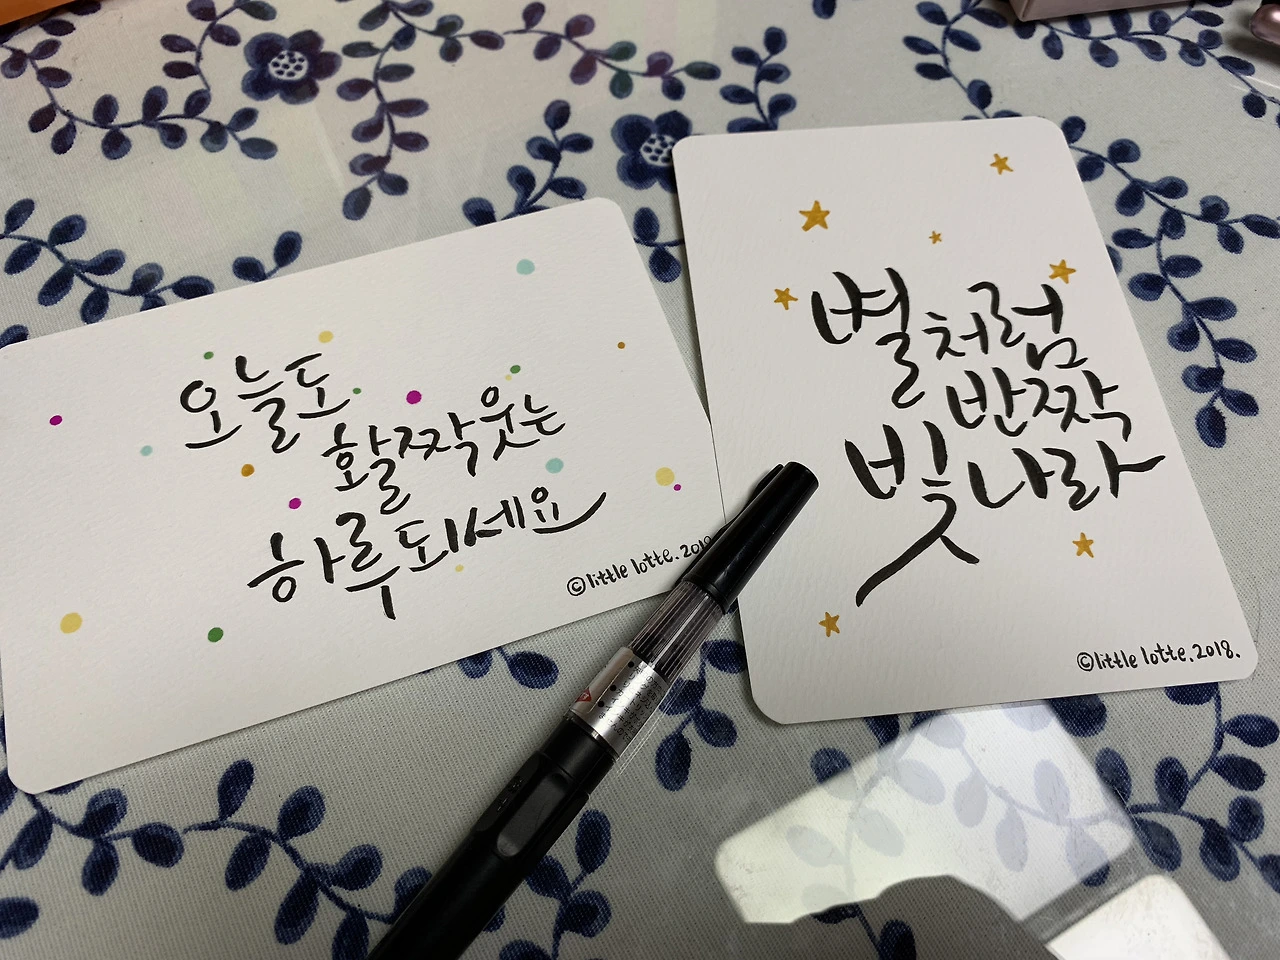 오늘도
활짝 웃는
하루 되세요
©little lotte. 2018
별처럼
반짝
빛나라
©little lotte. 2018.